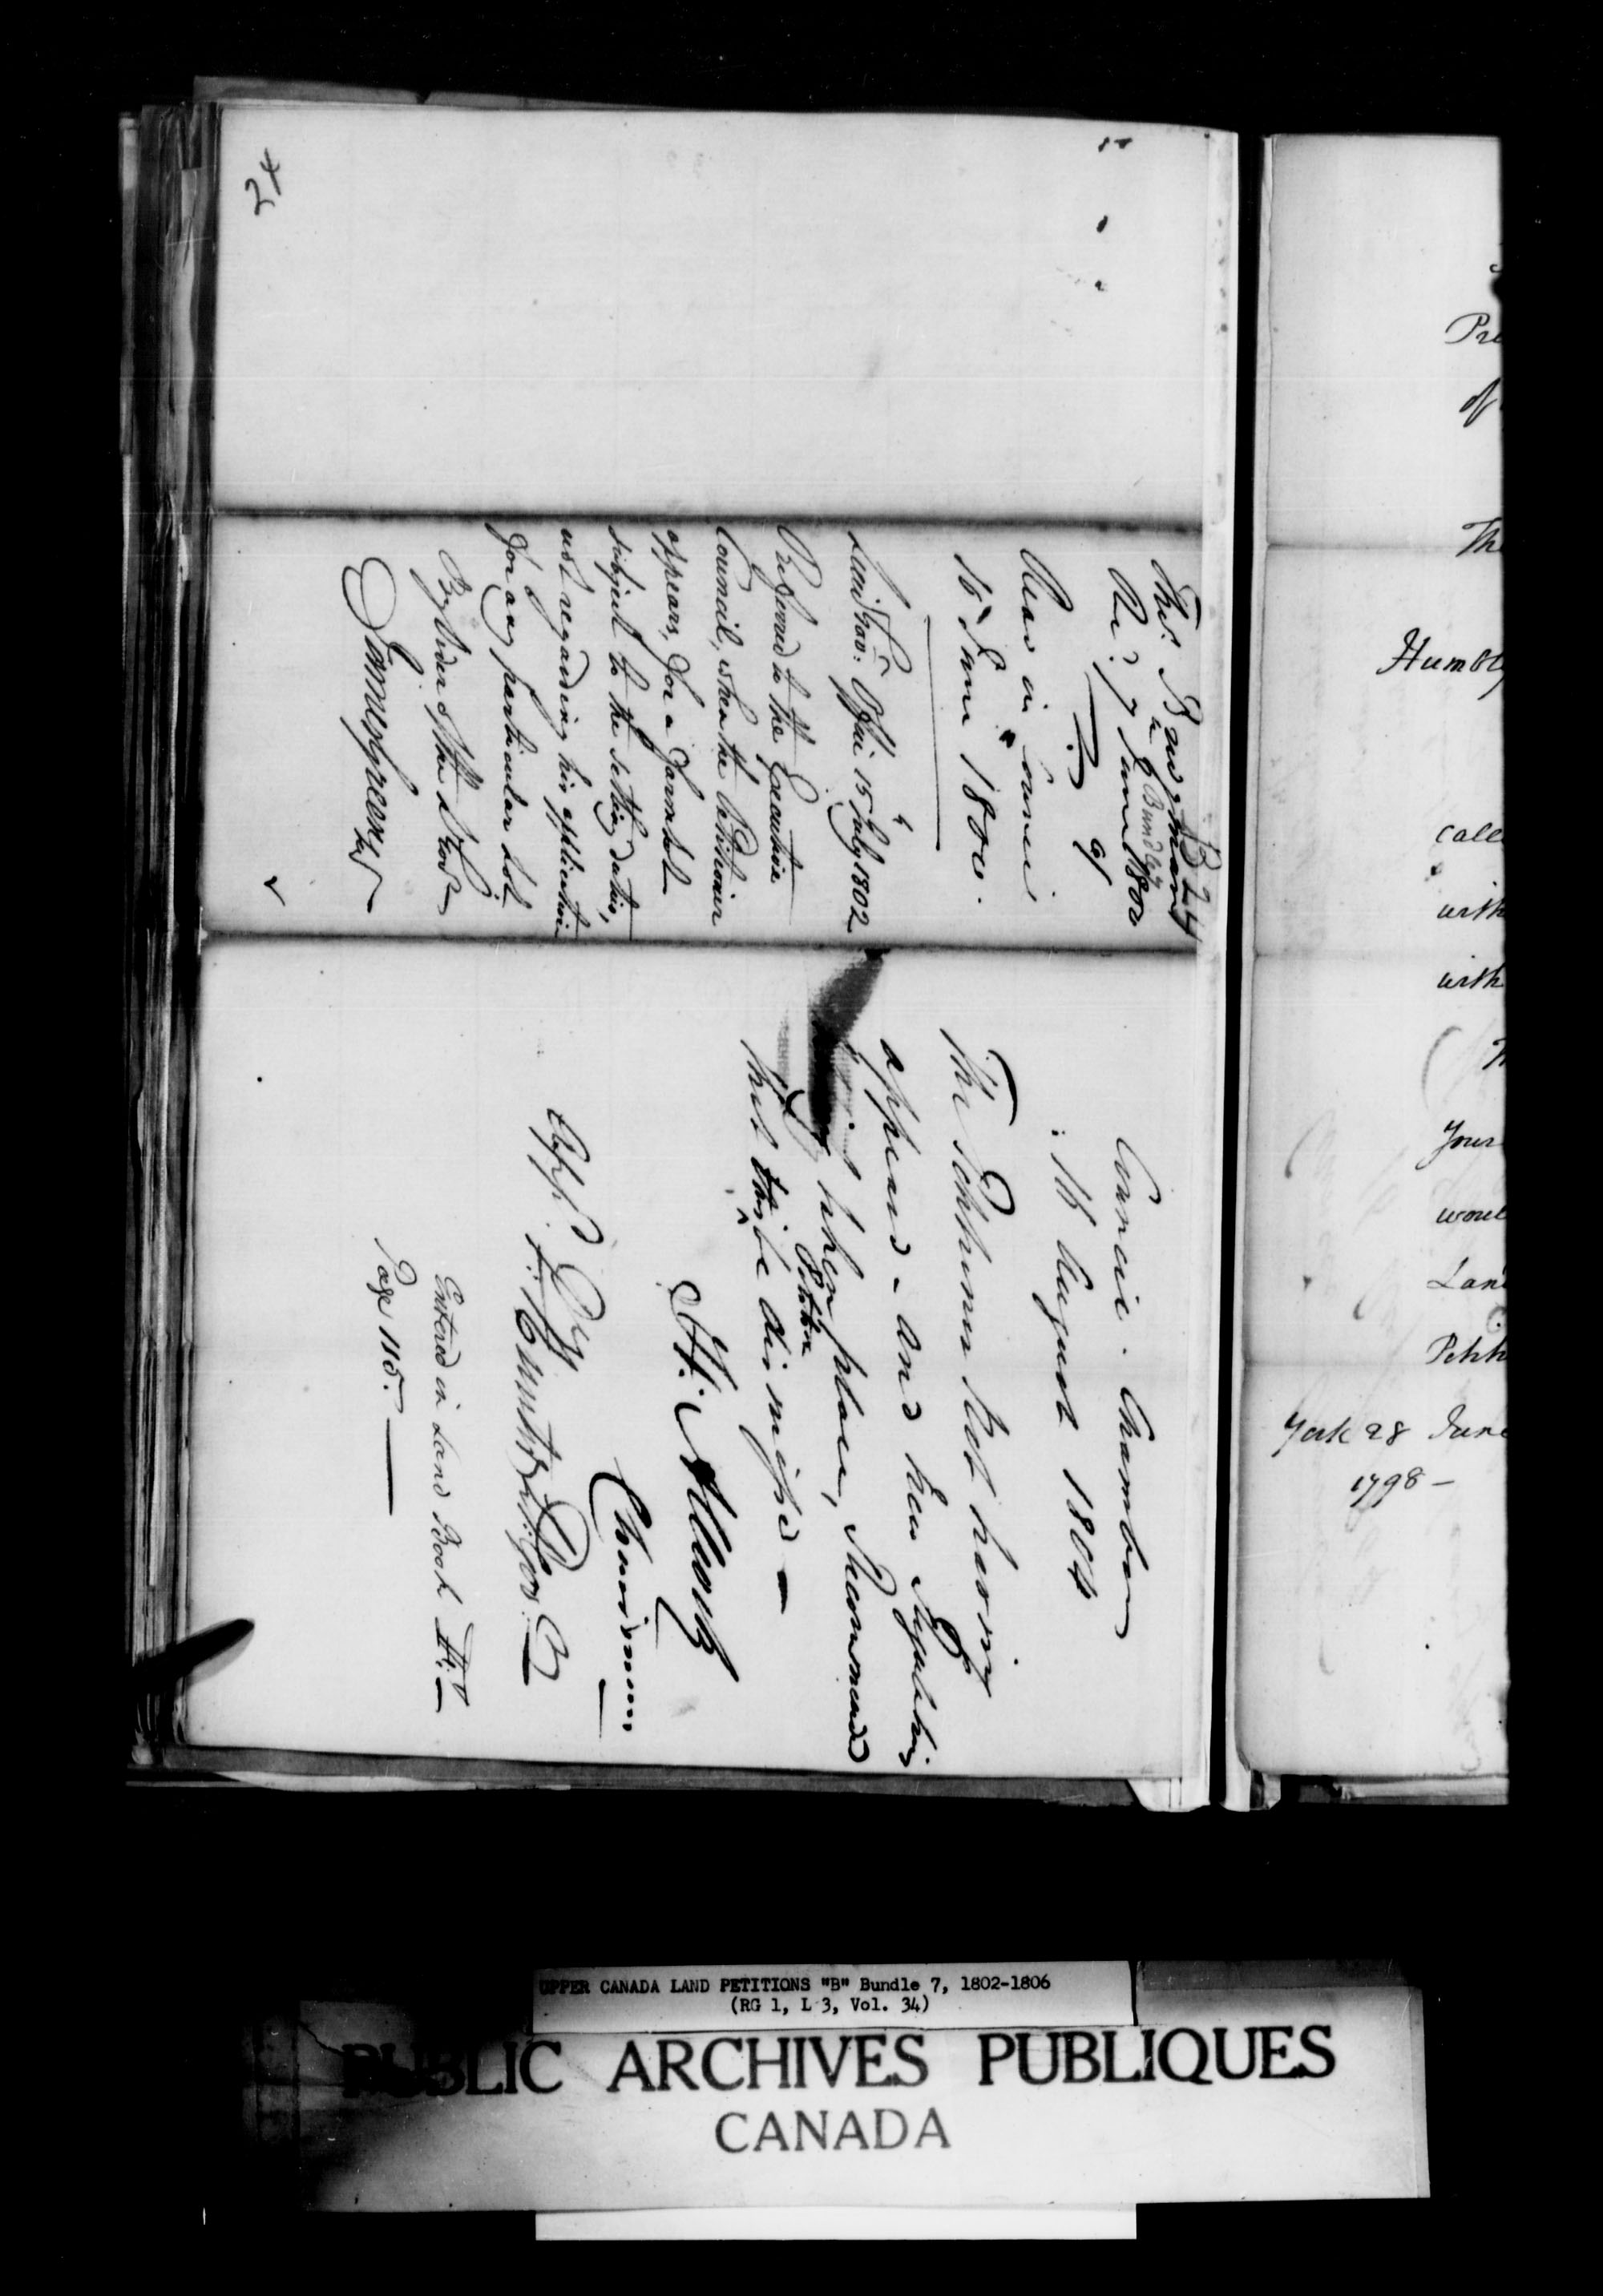 24
B 24
Thos. Bridgman
Bundle 7
Rec.d 7 June 1800
Read in Council
16 June 1800.
Lieut Gov.rs Office 15 July 1802
Referred to the Executive
Council, when the Petitioner
appears, for a Farm lot
subject to the settling duties,
not regarding his application
for any particular Lot.
By Order of the Lt Gov.r
James Green
Secy
Council Chamber
16 August 1804
The Petitioner not having
appeared and new Regulations
taken place, Recommend
that this Petition be dismissed
H. Allcock
Chairman
App.d
P. Hunter Lt. Gov.r
Entered in Land Book
Page 115.
Pre
of
The
Humbly
call
with
with
Your
woul
Land
Petit
York 28 June
1798 —
UPPER CANADA LAND PETITIONS "B" Bundle 7, 1802-1806
(RG 1, L 3, Vol. 34)
PUBLIC ARCHIVES PUBLIQUES
CANADA